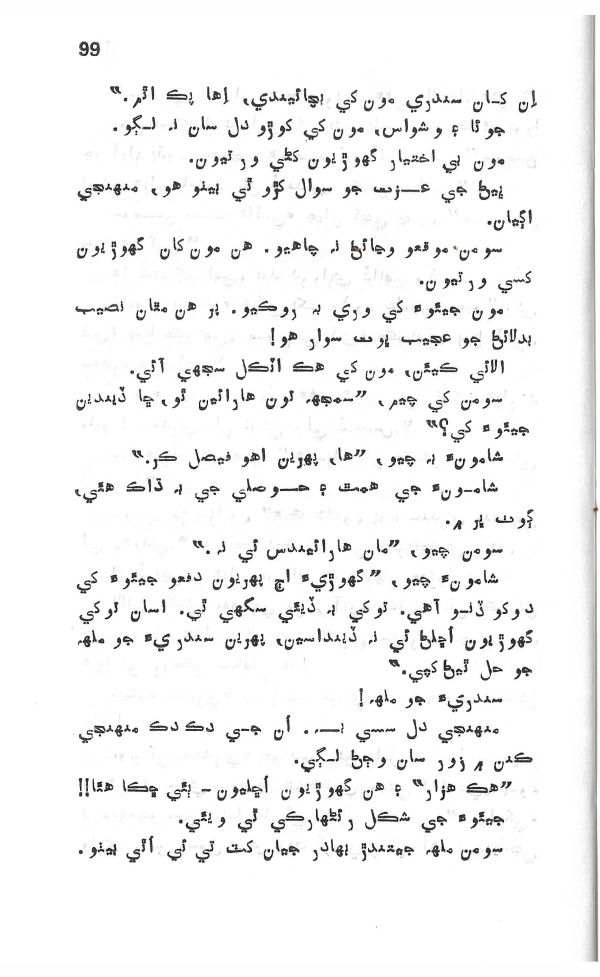 99
اِن کان سندري مون کي بچائيندي، اِها پڪ اٿم.”
جوئا ۽ وشواس، مون کي کوڙو دل سان نہ لڳو.
مون بي اختيار گهوڙيون کڻي ورتيون.
ڀيڻ جي عزت جو سوال کڙو ٿي بيٺو هو، منهنجي
اڳيان.
سومن موقعو وڃائڻ نہ چاهيو. هن مون کان گهوڙيون
کسي ورتيون.
مون جيٺوءَ کي وري بہ روڪيو. پر هن مٿان نصيب
بدلائڻ جو عجيب ڀوت سوار هو!
الائي ڪيئن، مون کي هڪ اٽڪل سجهي آئي.
سومن کي چيم، “سمجهہ تون هارائين ٿو، ڇا ڏيندين
جيٺوءَ کي؟”
شامونءَ بہ چيو، “ها، پهرين اهو فيصل ڪر.”
شامونءَ جي همت ۽ حوصلي جي بہ ڌاڪ هئي،
ڳوٺ ڀر ۾.
سومن چيو، “مان هارائيندس ئي نہ.”
شامونءَ چيو، “گهوڙيءَ اڄ پهريون دفعو جيٺوءَ کي
دوکو ڏنو آهي. توکي بہ ڏيئي سگهي ٿي. اسان توکي
گهوڙيون اُڇلڻ ئي نہ ڏينداسين، پهرين سندريءَ جو ملهہ
جو حل ٿيڻ کپي.”
سندريءَ جو ملهہ!
منهنجي دل سسي ... اُن جي دڪ دڪ منهنجي
ڪنن ۾ زور سان وڄڻ لڳي.
“هڪ هزار” ۽ هن گهوڙيون اُڇليون - ٻئي ڇڪا هئا!!
جيٺوءَ جي شڪل رئڻهارڪي ٿي ويئي.
سومن ملهہ جيتندڙ بهادر جيان کٽ تي ئي اٿي بيٺو.